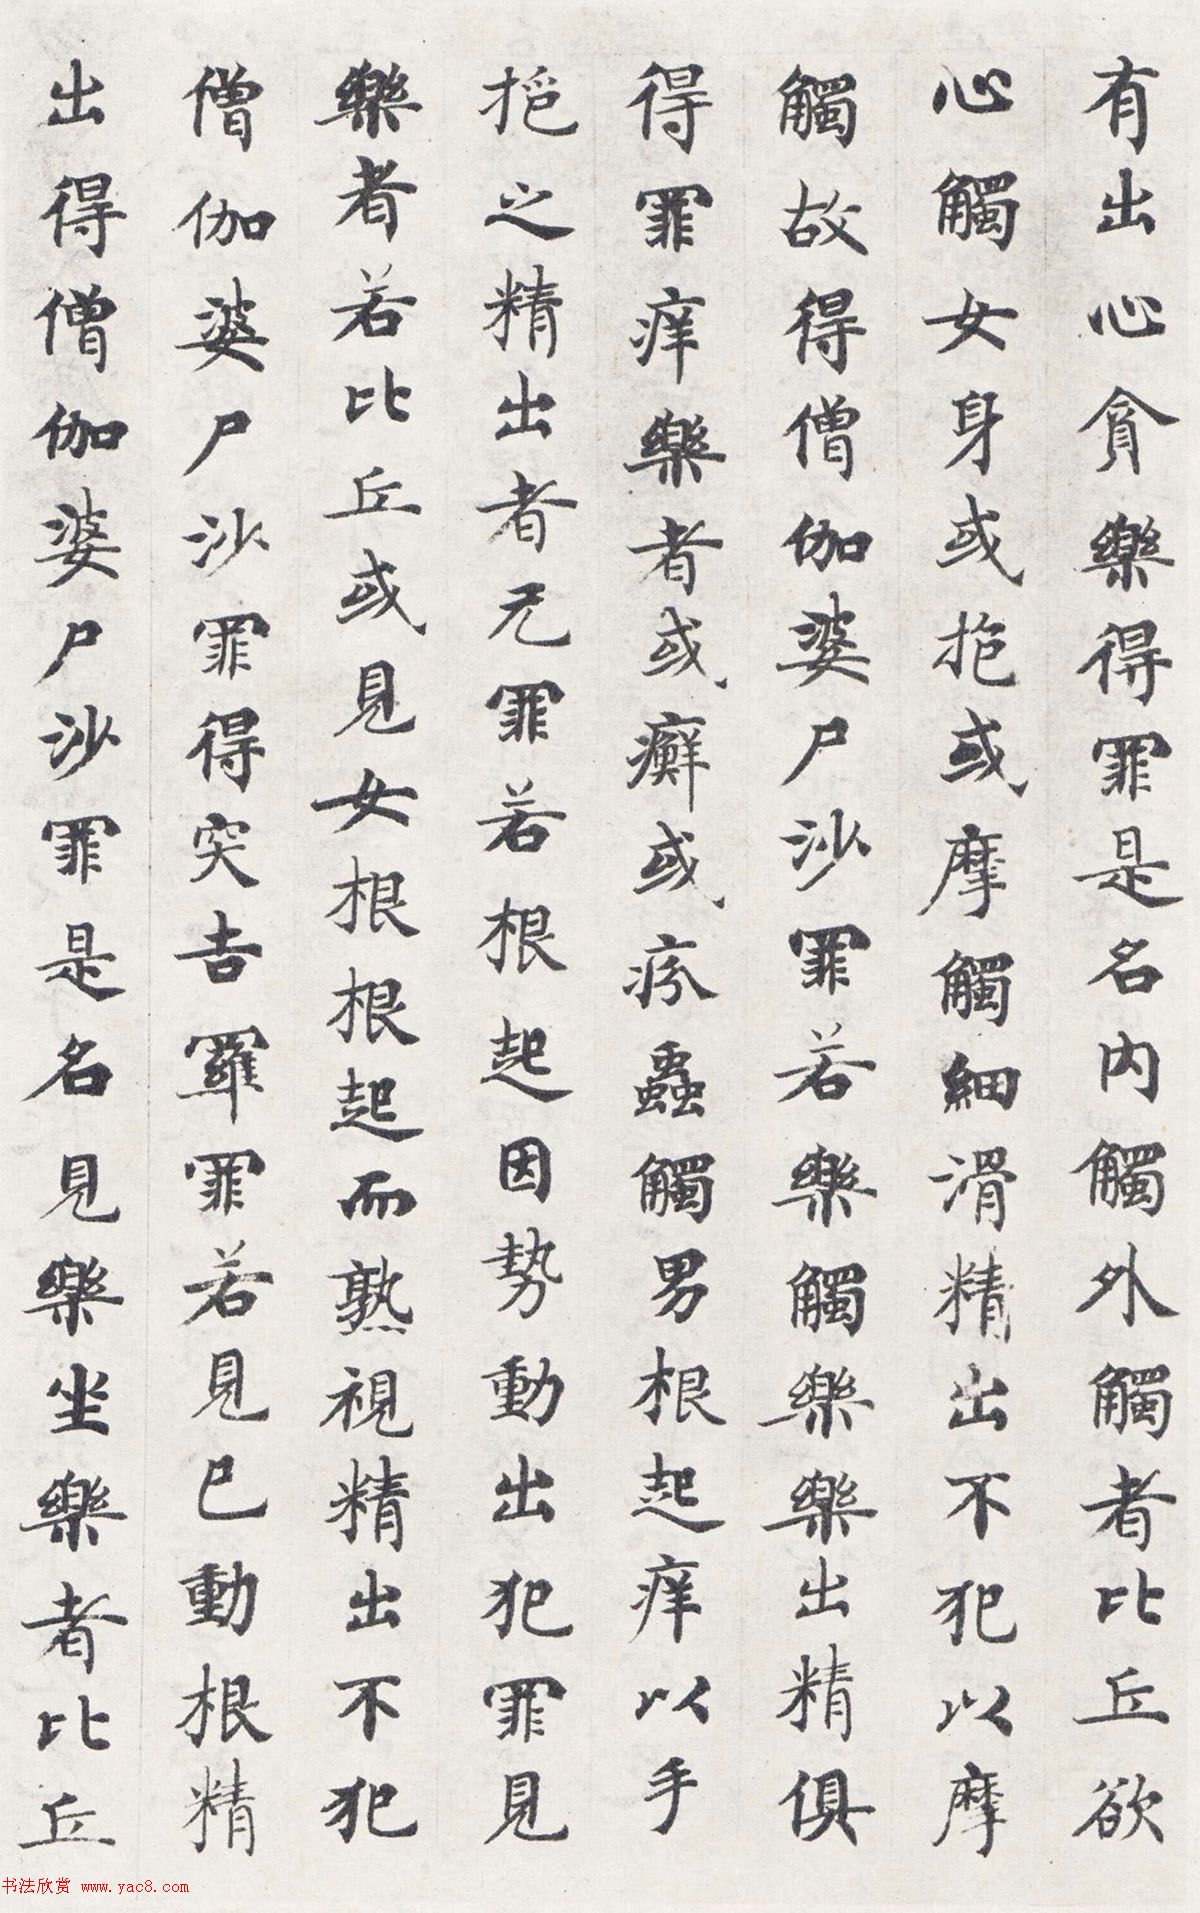 有出心貪樂得罪是名內觸外觸者比丘欲
心觸女身或抱或摩觸細滑精出不犯以摩
觸故得僧伽婆尸沙罪若樂觸樂樂出精俱
得罪痒樂者或癬或疥蟲觸男根起痒以手
把之精出者无罪若根起因勢動出犯罪見
樂者若比丘或見女根根起而熟視精出不犯
僧伽婆尸沙罪得突吉羅罪若見已動根精
出得僧伽婆尸沙罪是名見樂坐樂者比丘
书法欣赏 www.yac8.com